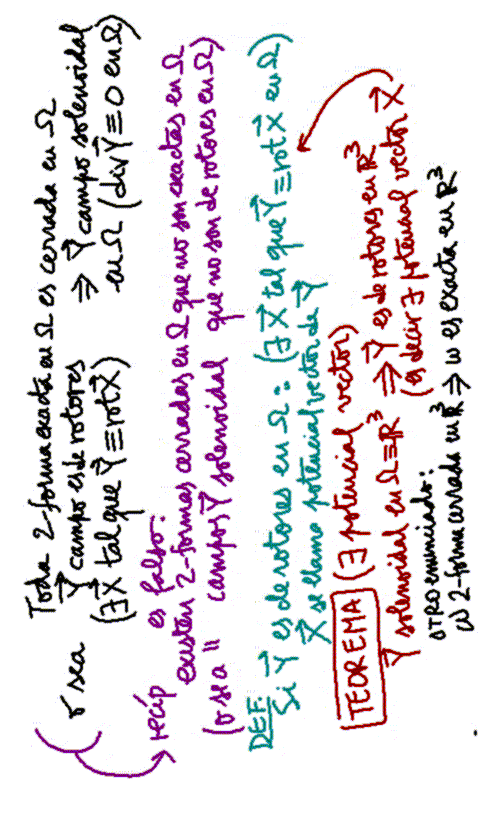 Toda 2-forma exacta en Ω es cerrada en Ω
o sea Y⃗ campo es de rotores ⇒ Y⃗ campo solenoidal
(∃ X⃗ tal que Y⃗ ≡ rot X⃗) en Ω (div Y⃗ ≡ 0 en Ω)
recíp es falso:
existen 2-formas cerradas en Ω que no son exactas en Ω
(o sea " campos Y⃗ solenoidal que no son de rotores en Ω)
DEF:
Si Y⃗ es de rotores en Ω: (∃ X⃗ tal que Y⃗ ≡ rot X⃗ en Ω)
X⃗ se llama potencial vector de Y⃗
TEOREMA (∃ potencial vector)
Y⃗ solenoidal en Ω ≡ ℝ³ ⇒ Y⃗ es de rotores en ℝ³
(es decir ∃ potencial vector X⃗
OTRO enunciado:
ω 2-forma cerrada en ℝ³ ⇒ ω es exacta en ℝ³